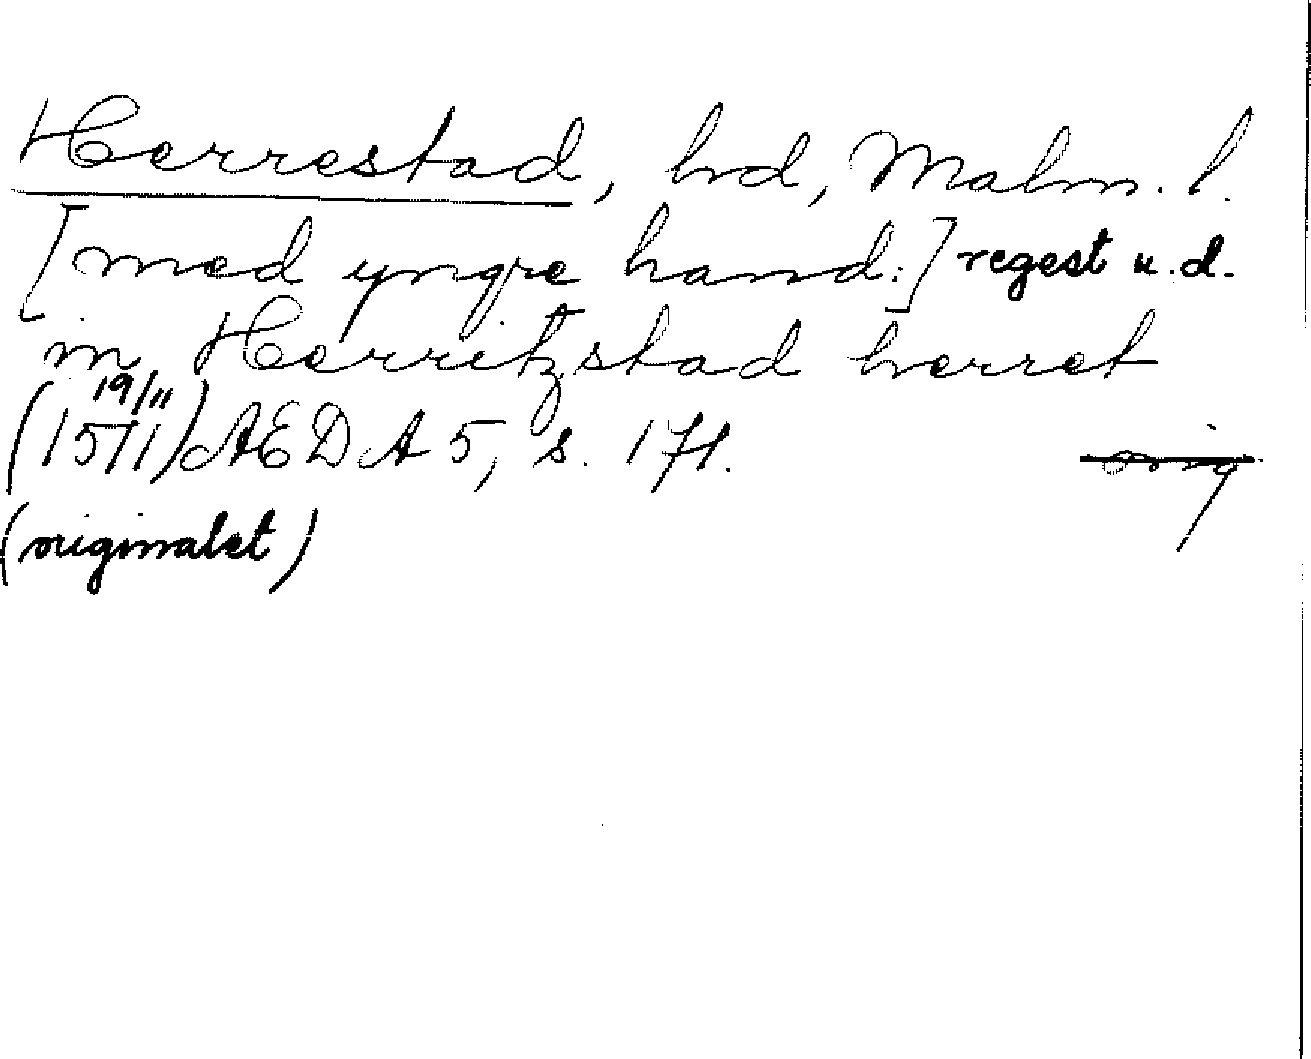 Herrestad, hrd, Malm. l.
[med yngre hand:] regest u.d.
in Herritzstad herret
19/11
(1571) AEDA 5, s. 171.
orig
(originalet)